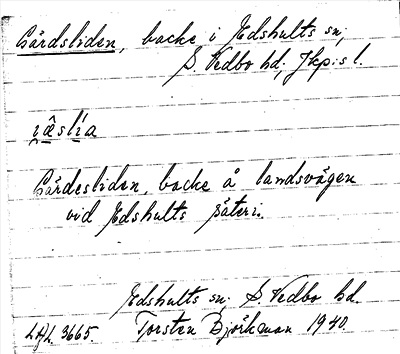 Gårdsliden, backe i Edshults sn,
S. Vedbo hd; Jkp:s l.
i̯æ̂slía
Gårdesliden, backe å landsvägen
vid Edshults säteri.
Edshults sn; S. Vedbo hd.
LAL 3665. Torsten Björkman 1940.